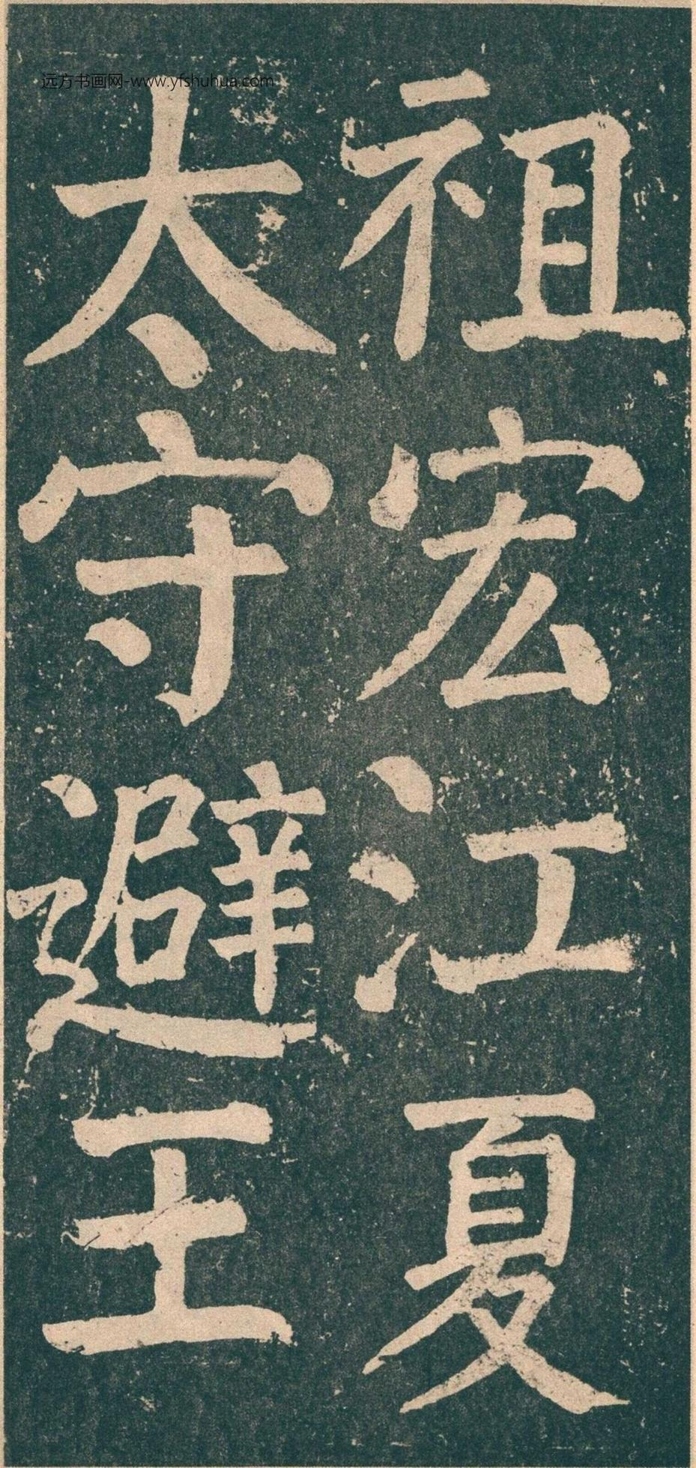 远方书画网-www.yfshuhua.com
祖宏江夏
太守避王